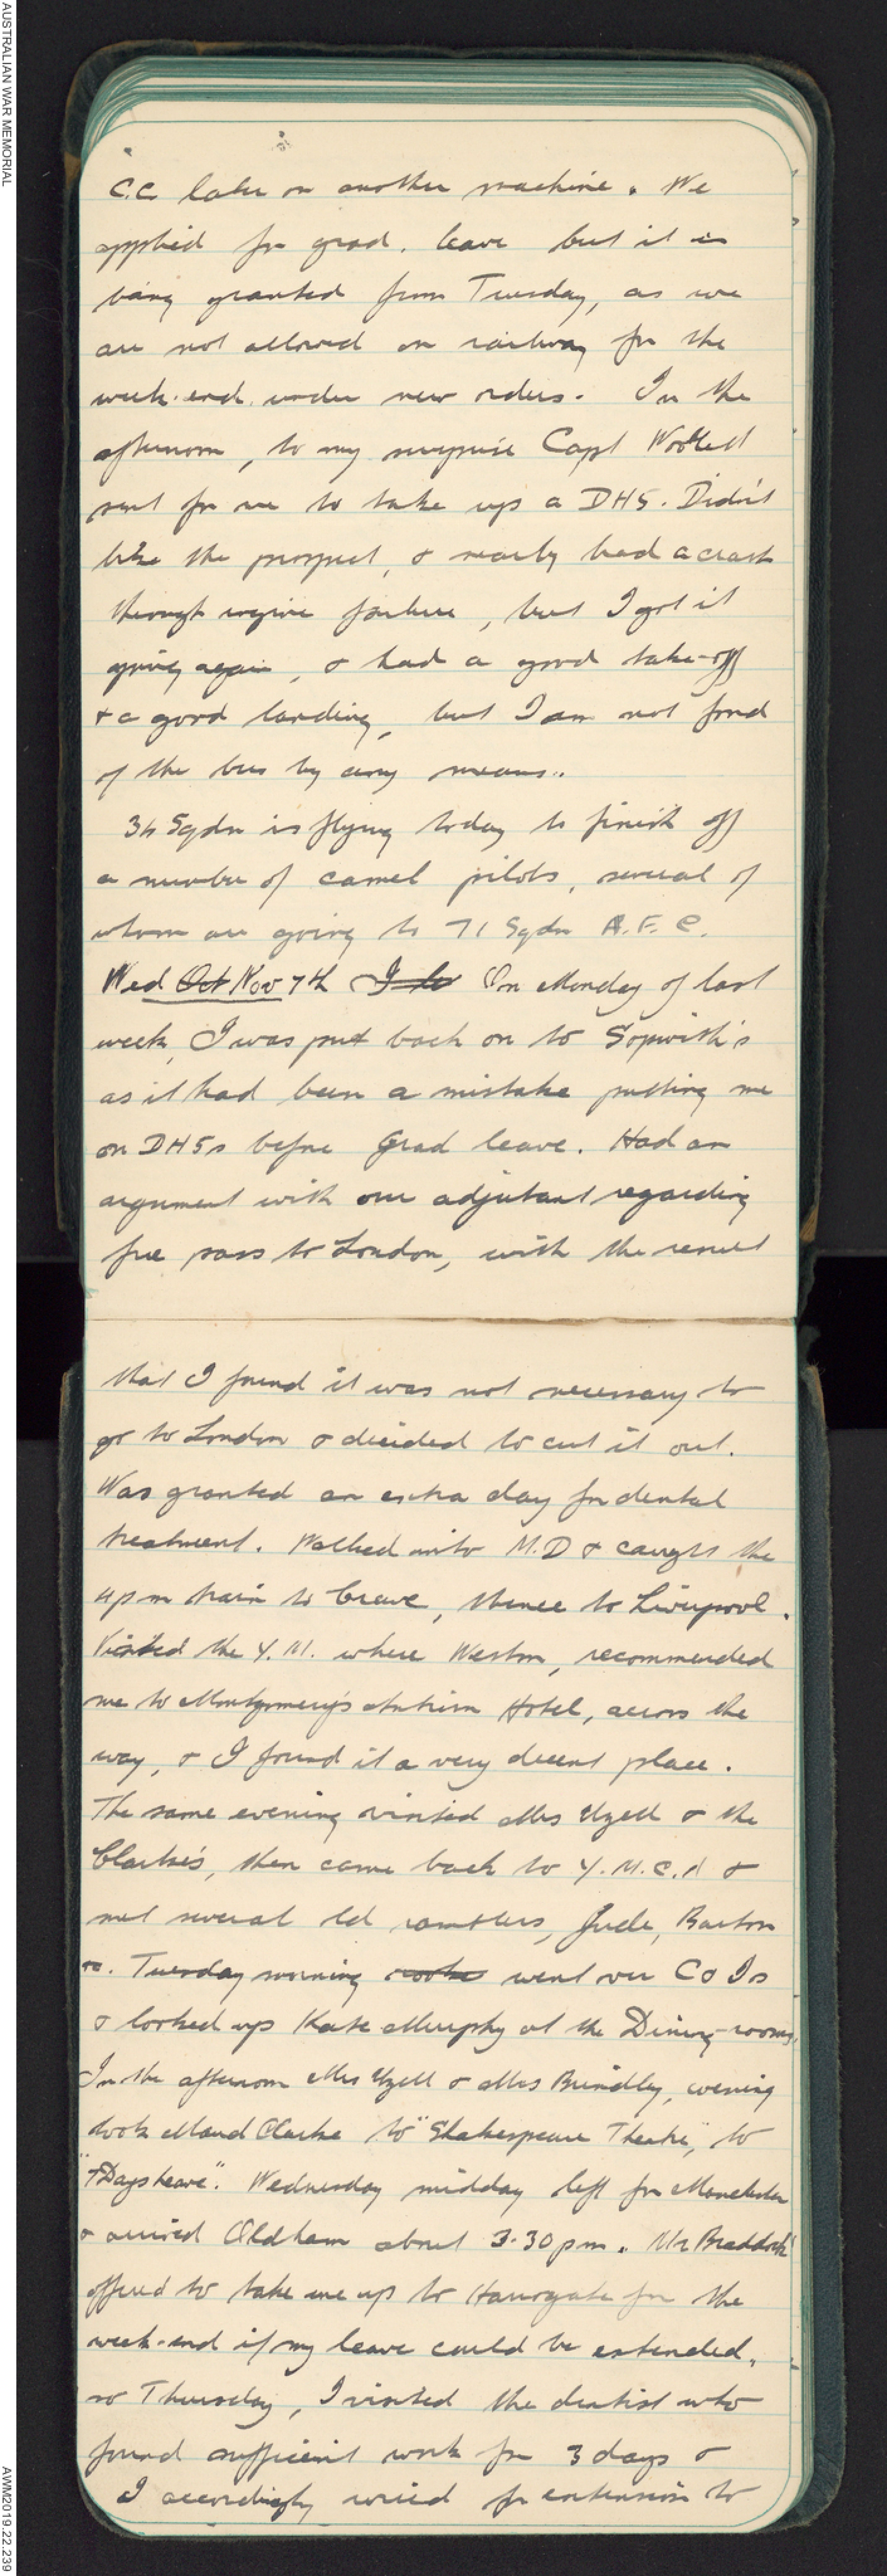 AUSTRALIAN WAR MEMORIAL
C.C. later on another machine. We
applied for grad. leave but it is
being granted from Tuesday, as we
are not allowed on railway for the
week-end under new orders. In the
afternoon, to my surprise Capt
sent for me to take up a DH5. Didn't
like the prospect, & nearly had a crash
through engine failure, but I got it
going again, & had a good take-off
& a good landing, but I am not fond
of the bus by any means.
34 Sqdn is flying today to finish off
a number of camel pilots, several of
whom are going to 71 Sqdn A.F.C.
Wed Oct Nov 7th I to On Monday of last
week, I was put back on to Sopwith's
as it had been a mistake putting me
on DH5s before Grad leave. Had an
argument with our adjutant regarding
free pass to London, with the result
that I found it was not necessary to
go to London & decided to cut it out.
Was granted an extra day for dental
treatment. Walked into M.D & caught the
4pm train to Crewe, thence to Liverpool.
Visited the Y.M. where Weston, recommended
me to Montgomery's station Hotel, across the
way, & I found it a very decent place.
The same evening visited Mrs Uzell & the
Clarke's, then came back to Y.M.C.A &
met several old ramblers, Jude, Barton
&c. Tuesday morning went over C & Is
& looked up Kate Murphy at the Dining-rooms.
In the afternoon Mrs Uzell & Mrs Brindley, evening
took Maud Clarke to "Shakespeare Theatre", to
"7 Days Leave". Wednesday midday left for Manchester
& arrived Oldham about 3.30pm. Mr Braddock
offered to take me up to Harrogate for the
week-end if my leave could be extended,
so Thursday, I visited the dentist who
found sufficient work for 3 days &
I accordingly wired for extension to
AWM2019.22.239